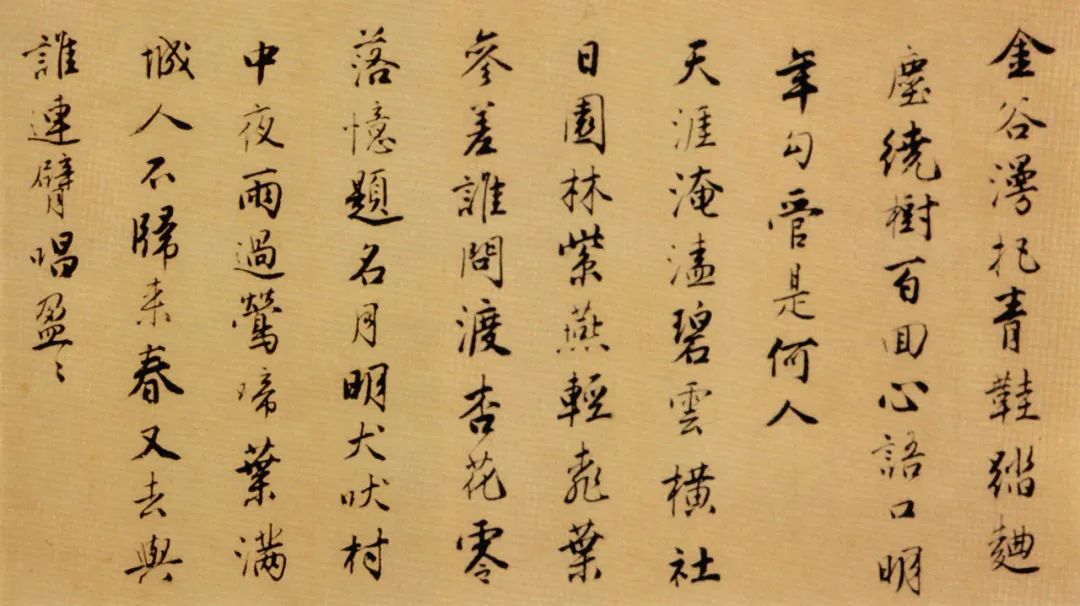 金谷漫把青鞋踏麯
塵繞樹百回心語口明
年勾管是何人
天涯淹溘碧雲橫社
日園林紫燕輕飛葉
參差誰問渡杏花零
落憶題名月明犬吠村
中夜雨過鶯啼葉滿
城人不歸來春又去與
誰連臂唱盈〻